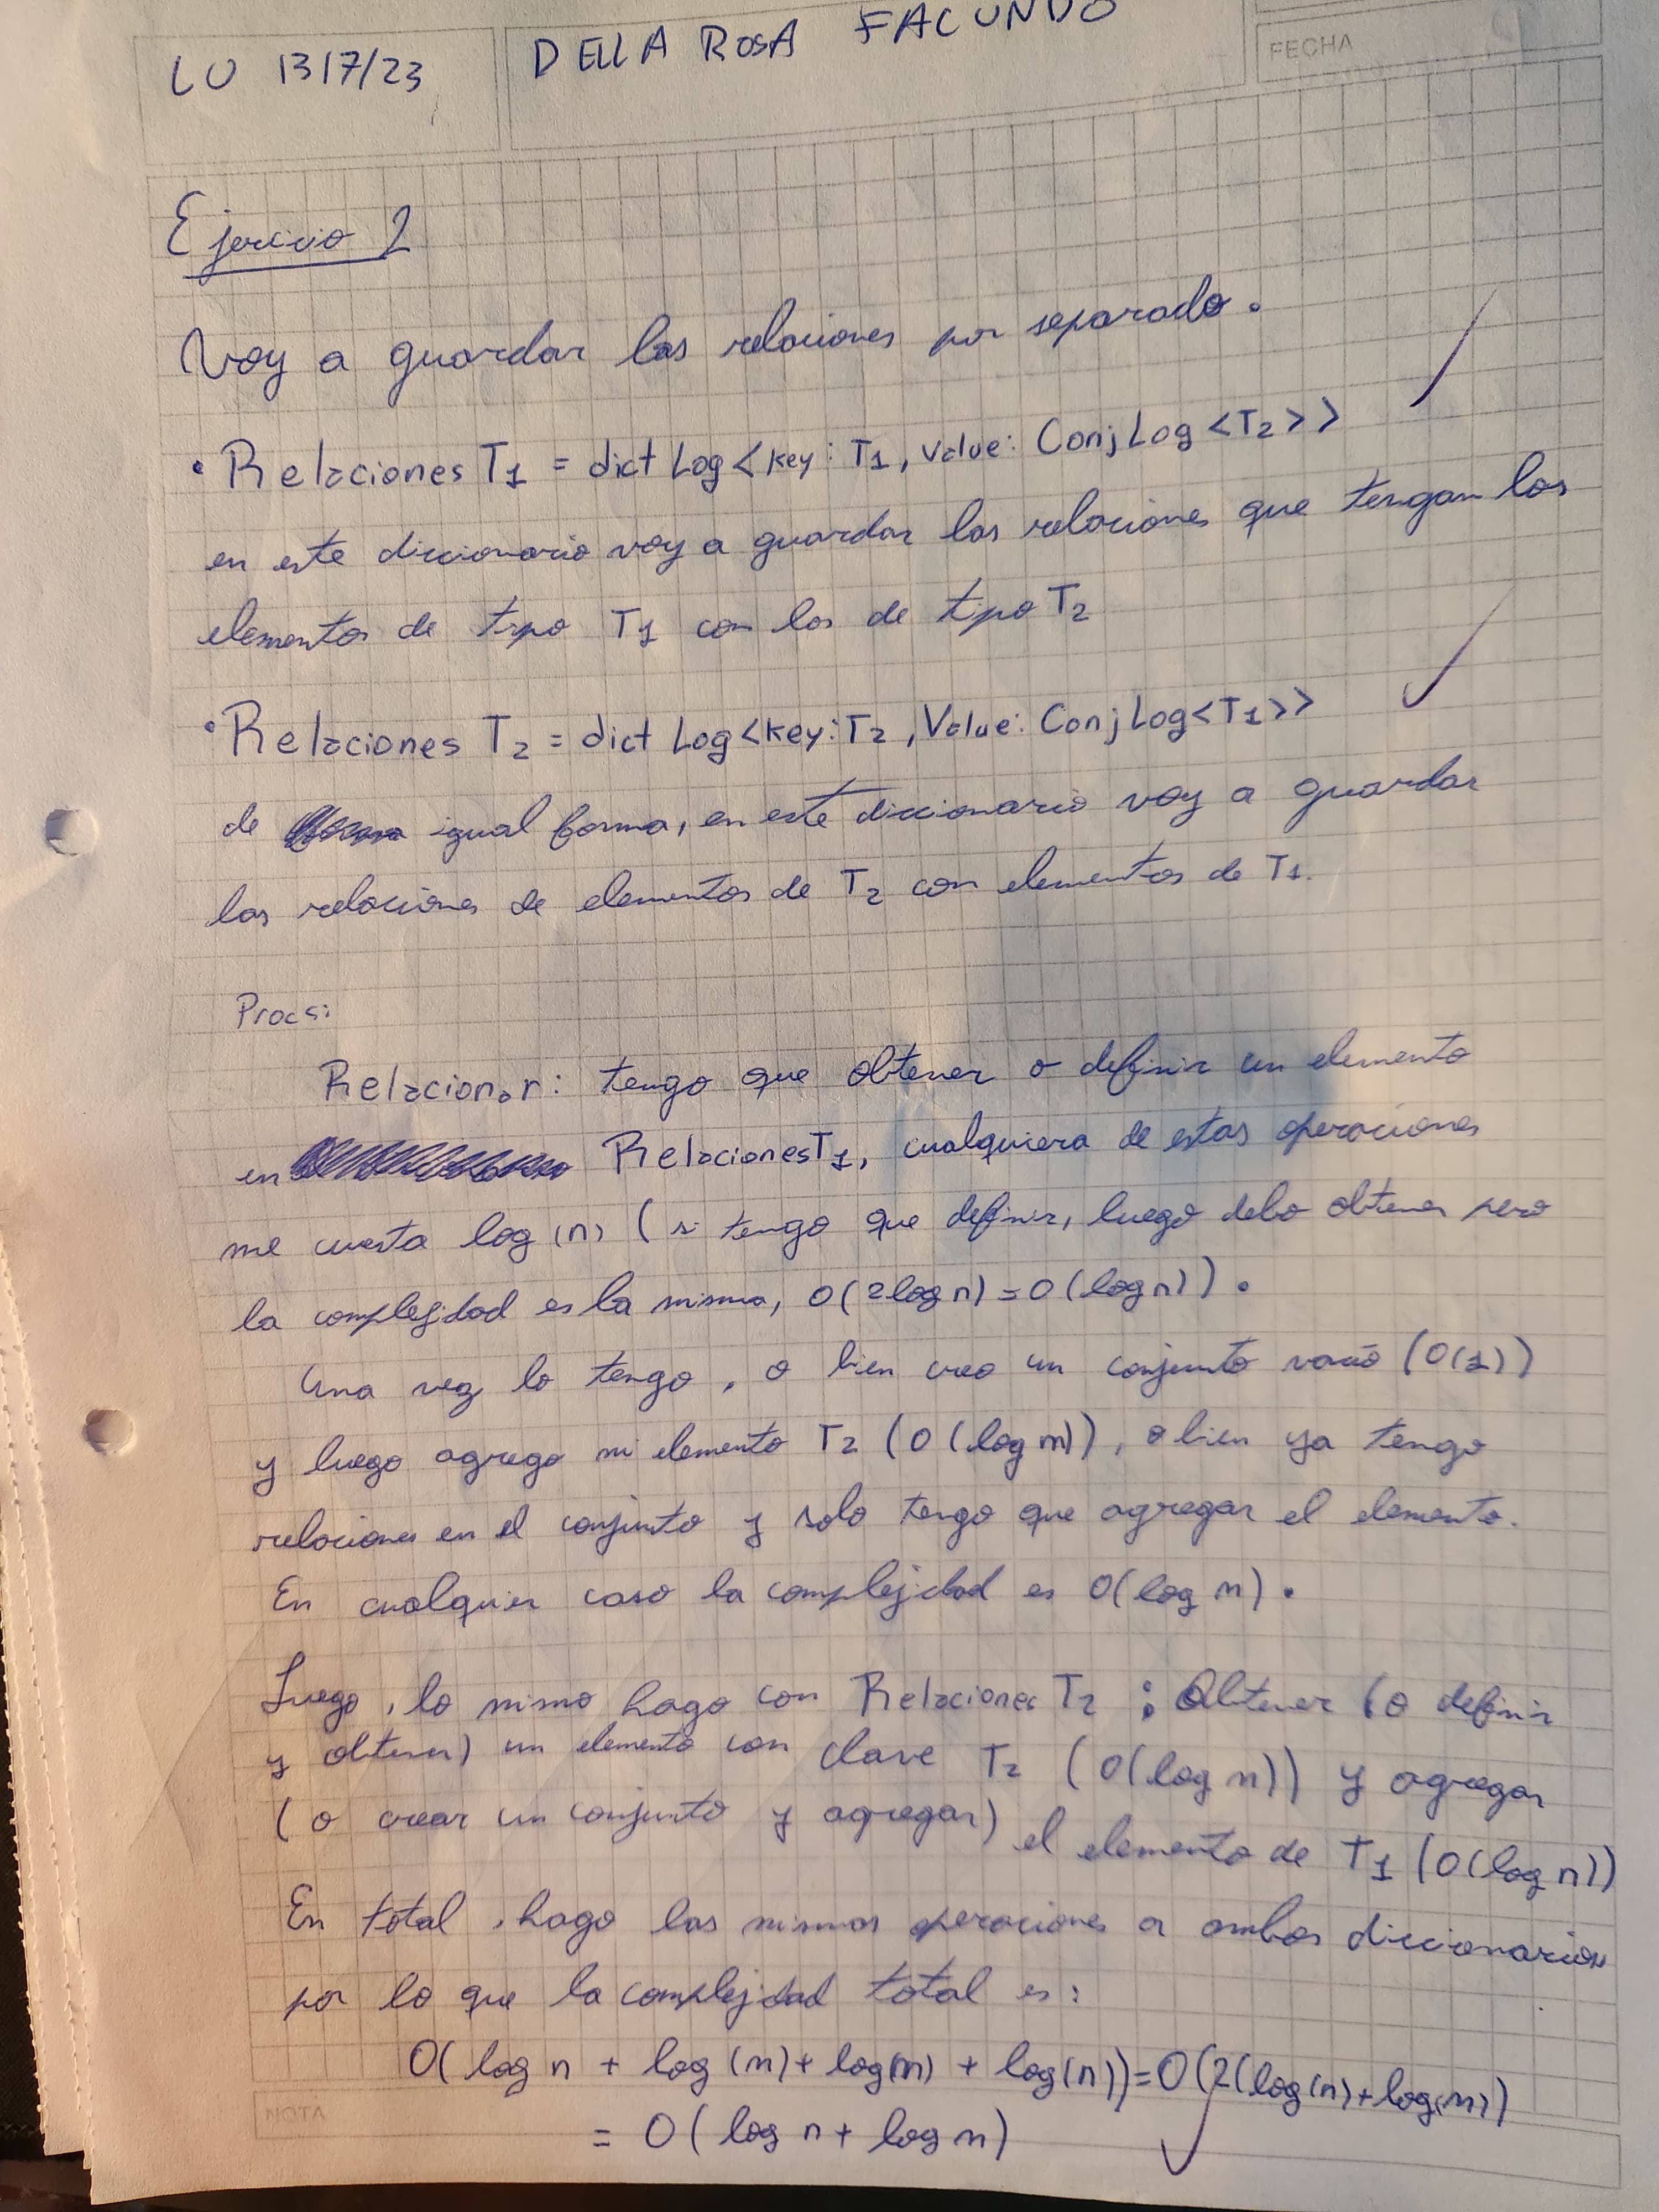 LU 1317/23
DELLA ROSA FACUNDO
FECHA
Ejercicio 2
Voy a guardar las relaciones por separado.
• Relaciones T1 = dict Log<key: T1, Value: Conj Log<T2>>
en este diccionario voy a guardar las relaciones que tengan los
elementos de tipo T1 con los de tipo T2
• Relaciones T2 = dict Log<key: T2, Value: Conj Log<T1>>
de igual forma, en este diccionario voy a guardar
las relaciones de elementos de T2 con elementos de T1.
Procs:
Relacionar: tengo que obtener o definir un elemento
en RelacionesT1, cualquiera de estas operaciones
me cuesta log(n) (si tengo que definir, luego debo obtener pero
la complejidad es la misma, O(2log n) = O(log n)).
Una vez lo tengo, o bien creo un conjunto vacío (O(1))
y luego agrego mi elemento T2 (O(log m)), o bien ya tengo
relaciones en el conjunto y solo tengo que agregar el elemento.
En cualquier caso la complejidad es O(log m).
Luego, lo mismo hago con Relaciones T2: Obtener (o definir
y obtener) un elemento con clave T2 (O(log m)) y agregar
(o crear un conjunto y agregar) el elemento de T1 (O(log n))
En total, hago las mismas operaciones a ambos diccionarios
por lo que la complejidad total es:
O(log n + log(m) + log(m) + log(n)) = O(2(log(n)+log(m))
= O(log n + log m)
NOTA